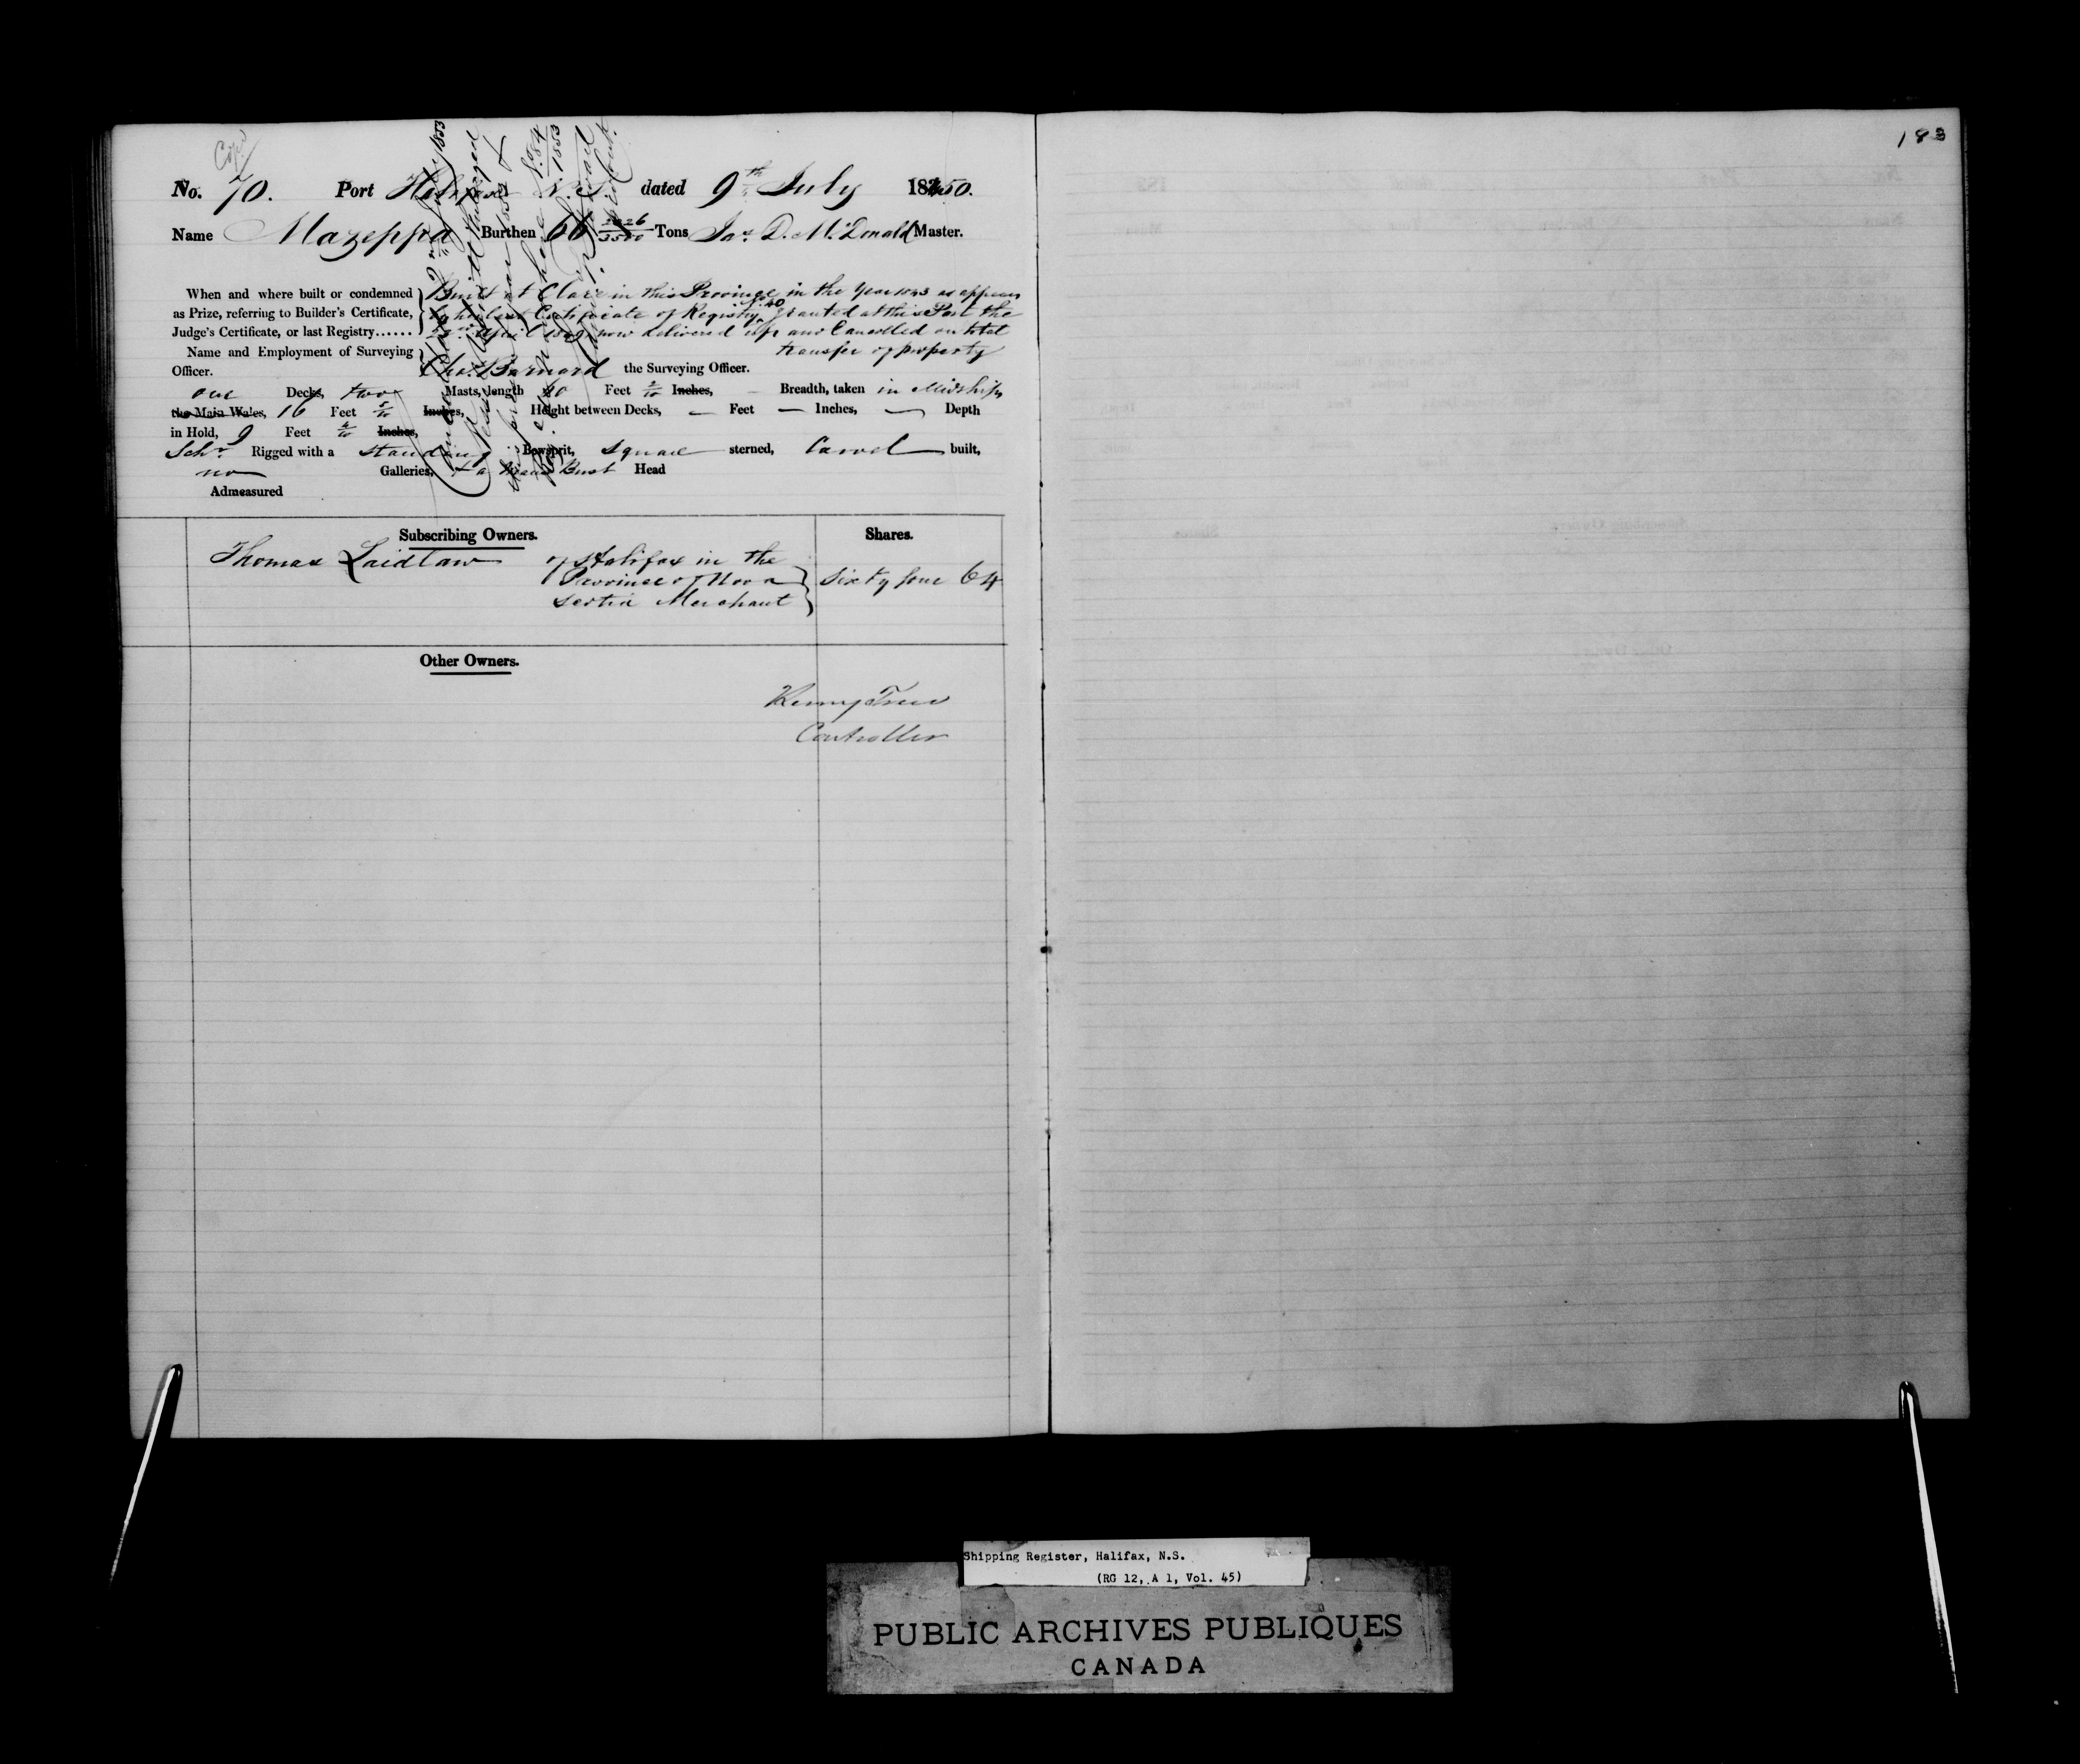 Copy
183
No. 70. Port Halifax N.S. dated 9th July 1850.
Name Mazeppa Burthen 66 Tons Jas. D. McDonald Master.
When and where built or condemned Built at Clare in this Province in the Year 1843 as appears
as Prize, referring to Builder's Certificate, by her last Certificate of Registry No. 40 granted at this Port the
Judge's Certificate, or last Registry...... April 1849 now delivered up and Cancelled on total
transfer of property
Name and Employment of Surveying
Officer. Chas. Barnard the Surveying Officer.
one Decks, two Masts, length 60 Feet 2/10 Inches, — Breadth, taken in Midships
the Main Wales, 16 Feet 5/10 Inches, Height between Decks, — Feet — Inches, — Depth
in Hold, 9 Feet Inches,
Schr. Rigged with a standing Bowsprit, square sterned, Carvel built,
no Galleries, & a Bust Head
Admeasured
Subscribing Owners. Shares.
Thomas Laidlaw of Halifax in the
Province of Nova
Scotia Merchant
sixty four 64
Other Owners.
Controller
Shipping Register, Halifax, N.S.
(RG 12, A 1, Vol. 45)
PUBLIC ARCHIVES PUBLIQUES
CANADA